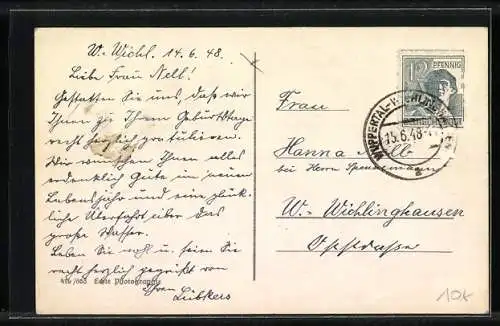 W.-Wichl. 14.6.48.
Liebe Frau Nell!
Gestatten Sie uns, daß wir
Ihnen zu Ihrem Geburtstage
recht herzlich gratulieren.
Wir wünschen Ihnen alles
erdenklich Gute im neuen
Lebensjahr und eine glück-
liche Überfahrt über das
große Wasser.
Leben Sie wohl u. seien Sie
recht herzlich gegrüßt von
Ihren Lübkers
Echte Photographie
12 PFENNIG
15.6.48
Frau
Hanna Nell
bei Herrn
W.-Wichlinghausen
10k